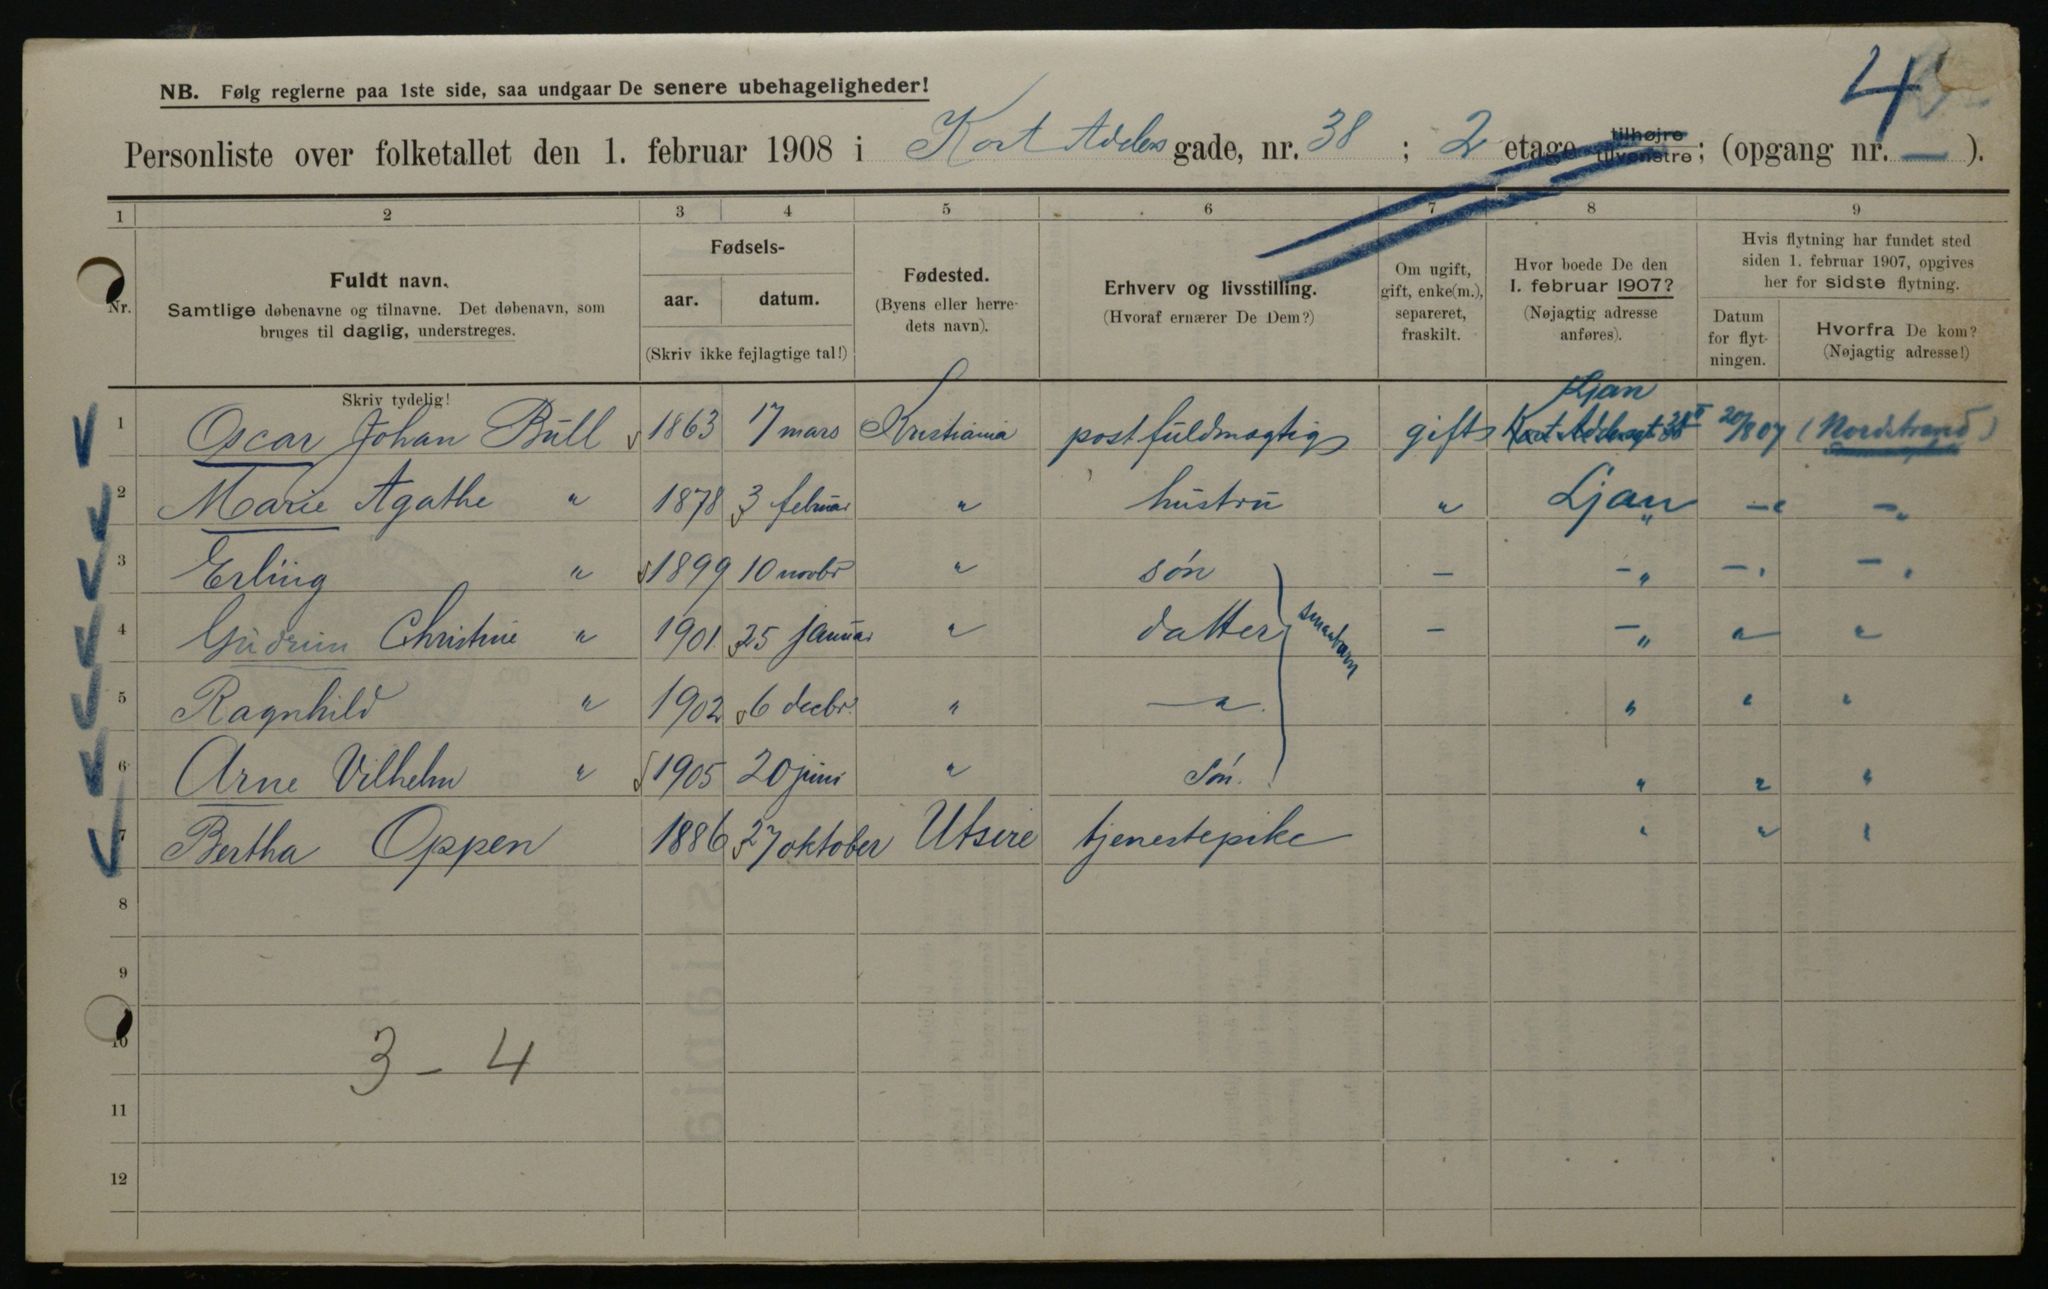 4
NB. Følg reglerne paa 1ste side, saa undgaar De senere ubehageligheder!
Personliste over folketallet den 1. februar 1908 i Kort Adelers gade, nr. 38 ; 2 etage tilhøjre tilvenstre ; (opgang nr. — ).
1 2 3 4 5 6 7 8 9
Nr. Fuldt navn. Samtlige døbenavne og tilnavne. Det døbenavn, som bruges til daglig, understreges.
Fødsels- aar. datum. (Skriv ikke fejlagtige tal!)
Fødested. (Byens eller herredets navn).
Erhverv og livsstilling. (Hvoraf ernærer De Dem?)
Om ugift, gift, enke(m.), separeret, fraskilt.
Hvor boede De den 1. februar 1907? (Nøjagtig adresse anføres).
Hvis flytning har fundet sted siden 1. februar 1907, opgives her for sidste flytning.
Datum for flytningen. Hvorfra De kom? (Nøjagtig adresse!)
Skriv tydelig!
1 Oscar Johan Bull 1863 17 mars Kristiania postfuldmægtig gift Ljan Kort Adelersgt 38 II 20/8 07 (Nordstrand)
2 Marie Agathe " 1878 3 februar " hustru " Ljan " —" —"
3 Erling " 1899 10 novbr " søn — —" —" —"
4 Gudrun Christine " 1901 25 januar " datter — —" " "
smaabarn
5 Ragnhild " 1902 6 decbr. " —"— " " "
6 Arne Vilhelm " 1905 20 juni " søn. " " "
7 Bertha Oppen 1886 27 oktober Utsire tjenestepike " " "
8
9
10
3 - 4
11
12